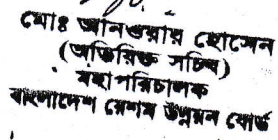 মোঃ আনওয়ার হোসেন
(অতিরিক্ত সচিব)
মহাপরিচালক
বাংলাদেশ রেশম উন্নয়ন বোর্ড